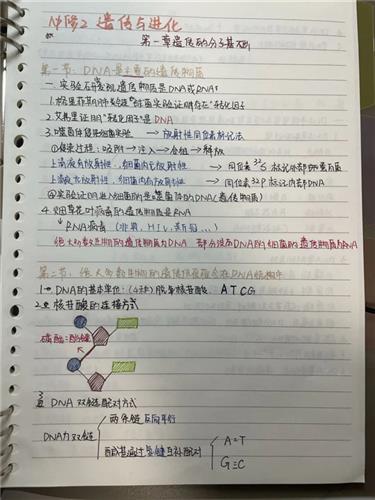 必修2 遗传与进化
第一章遗传的分子基础
第一节：DNA是主要的遗传物质
一、实验证据发现遗传物质是DNA或RNA
1.格里菲斯肺炎链球菌实验证明存在"转化因子"
2.艾弗里证明"转化因子"是DNA
3.噬菌体侵染细菌实验 → 放射性同位素标记法
①侵染过程：吸附→注入→合成→释放
上清液有放射性，细菌内无放射性 → 同位素³²S标记外部的蛋白质
上清液无放射性，细菌内有放射性 → 同位素³²P标记内部DNA
②实验证明进入细菌的是噬菌体的DNA(遗传物质)
4.烟草花叶病毒的遗传物质是RNA
RNA病毒(非典，HIV，新冠...)
绝大多数生物的遗传物质为DNA 部分没有DNA的病毒的遗传物质为RNA
第二节：绝大多数生物的遗传信息蕴含在DNA结构中
1. DNA的基本单位：(4种)脱氧核苷酸：ATCG
2. 核苷酸的连接方式
磷酸二酯键
3. DNA双链配对方式
两条链反向平行
DNA为双链
碱基通过氢键互补配对
A=T
G≡C